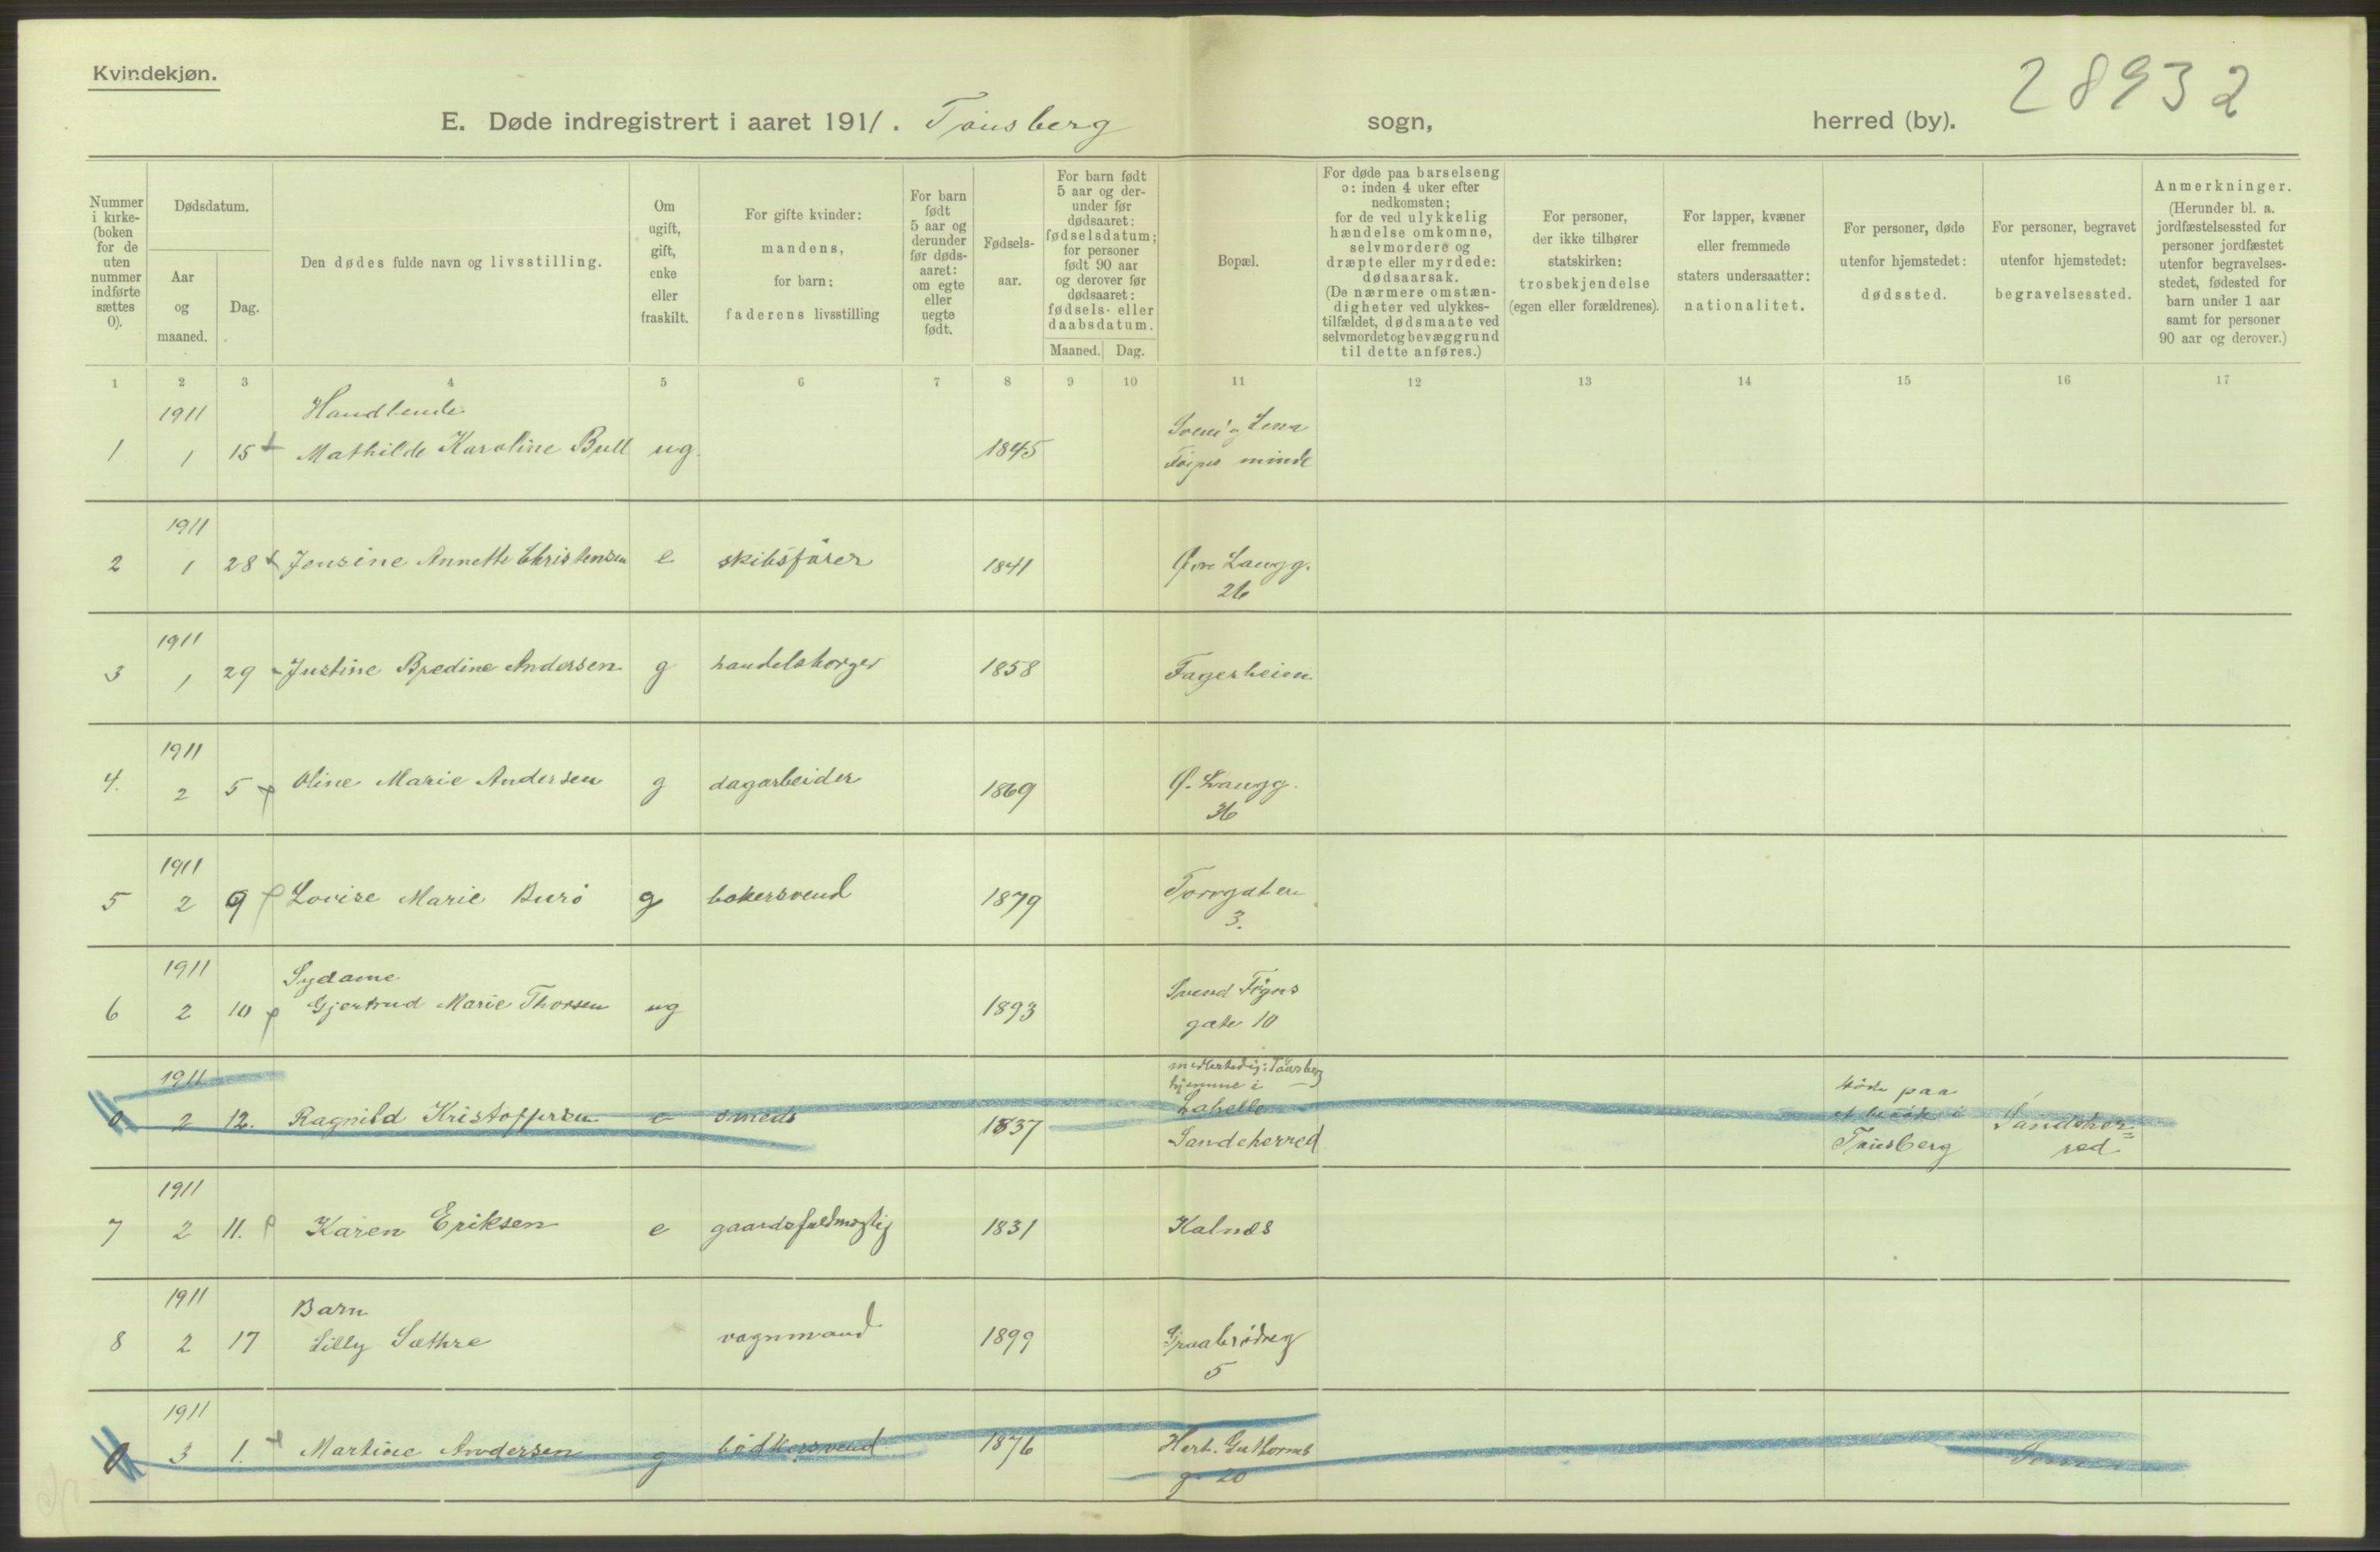 Kvindekjøn.
28932
E. Døde indregistrert i aaret 1911. Tønsberg sogn, herred (by).
Nummer i kirke- (boken for de uten nummer indførte sættes 0).
Dødsdatum.
Aar og maaned.
Dag.
Den dødes fulde navn og livsstilling.
Om ugift, gift, enke eller fraskilt.
For gifte kvinder: mandens, for barn: faderens livsstilling
For barn født 5 aar og derunder før døds- aaret: om egte eller uegte født.
Fødsels- aar.
For barn født 5 aar og der- under før dødsaaret: fødselsdatum; for personer født 90 aar og derover før dødsaaret: fødsels- eller daabsdatum.
Maaned. Dag.
Bopæl.
For døde paa barselseng ɔ: inden 4 uker efter nedkomsten; for de ved ulykkelig hændelse omkomne, selvmordere og dræpte eller myrdede: dødsaarsak. (De nærmere omstæn- digheter ved ulykkes- tilfældet, dødsmaate ved selvmordet og bevæggrund til dette anføres.)
For personer, der ikke tilhører statskirken: trosbekjendelse (egen eller forældrenes).
For lapper, kvæner eller fremmede staters undersaatter: nationalitet.
For personer, døde utenfor hjemstedet: dødssted.
For personer, begravet utenfor hjemstedet: begravelsessted.
Anmerkninger. (Herunder bl. a. jordfæstelsessted for personer jordfæstet utenfor begravelses- stedet, fødested for barn under 1 aar samt for personer 90 aar og derover.)
1 2 3 4 5 6 7 8 9 10 11 12 13 14 15 16 17
1911 Handlende
1 1 15 Mathilde Karoline Bull ug. 1845 minde
1911
2 1 28 Jensine Annette Christensen e skibsfører 1841 Øvre Langg.
26
1911
3 1 29 Justine Bredine Andersen g handelsborger 1858 Fagerheim
1911
4. 2 5 Oline Marie Andersen g dagarbeider 1869 Ø. Langg.
36
1911
5 2 9 Lovise Marie Burø g bakersvend 1879 Torvgaten
3.
1911 Sydame
6 2 10 Gjertrud Marie Thorsen ug 1893 Svend Föyns
gate 10
1911 midlertidig i Tönsberg
hjemme i
0 2 12. Ragnild Kristoffersen e smeds 1837 Sandeherred
döde paa
et besök i
Tønsberg
Sandeher=
red
1911
7 2 11. Karen Eriksen e gaardsfuldmægtig 1831 Kalnæs
1911 Barn
8 2 17 Lilly Sæthre vognmand 1899 Graabrödreg
5
1911
0 3 1. Martine Andersen g bødkersvend 1876 Hert. Guthorms
g. 20